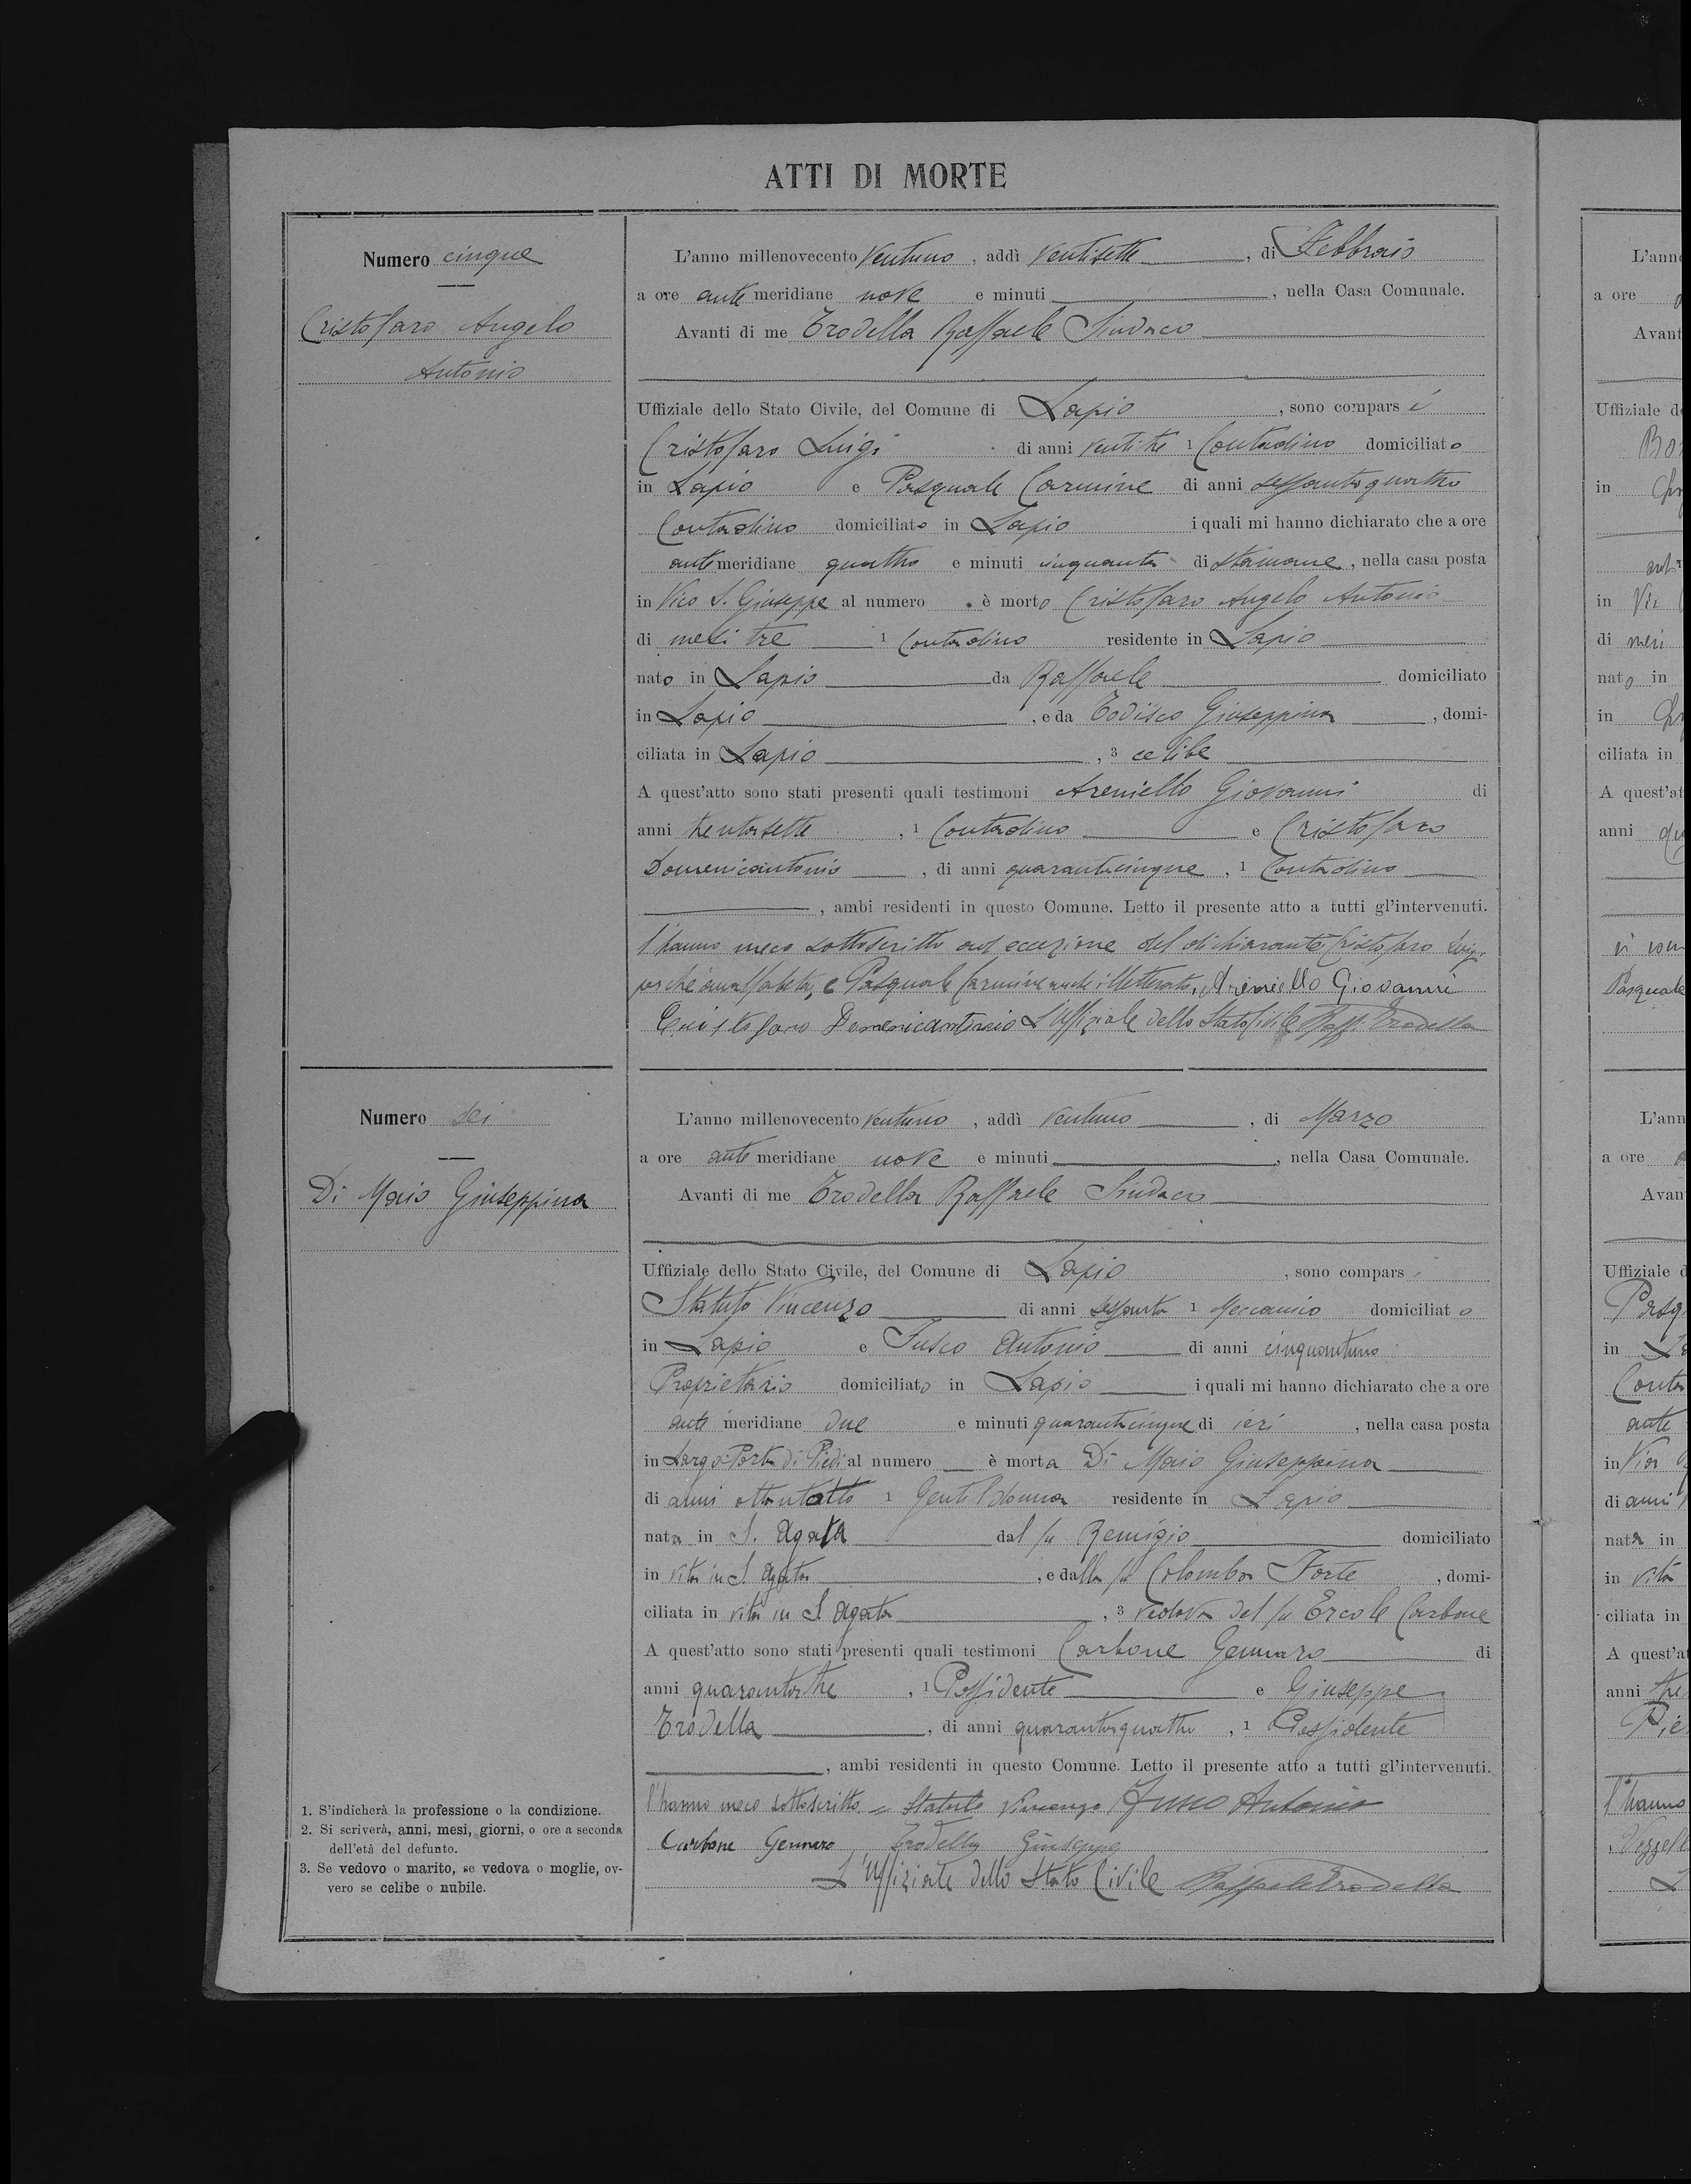 ATTI DI MORTE
Numero cinque
Cristofaro Angelo
Antonio
L'anno millenovecento ventuno, addì ventisette, di Febbraio
a ore antemeridiane nove e minuti, nella Casa Comunale.
Avanti di me Trodella Raffaele Sindaco
Uffiziale dello Stato Civile, del Comune di Lapio, sono comparsi
Cristofaro Luigi di anni ventitre 1 Contadino domiciliato
in Lapio e Pasquale Carmine di anni sessantaquattro
Contadino domiciliato in Lapio i quali mi hanno dichiarato che a ore
antemeridiane quattro e minuti cinquanta di stamane, nella casa posta
in Vico S. Giuseppe al numero è morto Cristofaro Angelo Antonio
di mesi tre 1 Contadino residente in Lapio
nato in Lapio da Raffaele domiciliato
in Lapio, e da Todisco Giuseppina, domi-
ciliata in Lapio, 3 celibe
A quest'atto sono stati presenti quali testimoni Areniello Giovanni di
anni trentasette, 1 Contadino e Cristofaro
Domenicantonio, di anni quarantacinque, 1 Contadino
, ambi residenti in questo Comune. Letto il presente atto a tutti gl'intervenuti.
l'hanno meco sottoscritto ad eccezione del dichiarante Cristofaro Luigi
perchè analfabeta, e Pasquale Carmine anche illetterato. Areniello Giovanni
Cristofaro Domenicantonio L'Uffiziale dello Stato Civile Raff. Trodella
Numero sei
Di Maio Giuseppina
L'anno millenovecento ventuno, addì ventuno, di Marzo
a ore antemeridiane nove e minuti, nella Casa Comunale.
Avanti di me Trodella Raffaele Sindaco
Uffiziale dello Stato Civile, del Comune di Lapio, sono comparsi
Statuto Vincenzo di anni sessanta 1 Meccanico domiciliato
in Lapio e Fusco Antonio di anni cinquantuno
Proprietario domiciliato in Lapio i quali mi hanno dichiarato che a ore
antemeridiane due e minuti quarantacinque di ieri, nella casa posta
in Largo Porta di Piedi al numero è morta Di Maio Giuseppina
di anni ottantotto 1 Gentildonna residente in Lapio
nata in S. Agata dal fu Remigio domiciliato
in vita in S. Agata, e dalla fu Colomba Forte, domi-
ciliata in vita in S. Agata, 3 vedova del fu Ercole Carbone
A quest'atto sono stati presenti quali testimoni Carbone Gennaro di
anni quarantatre, 1 Possidente e Giuseppe
Trodella, di anni quarantaquattro, 1 Possidente
, ambi residenti in questo Comune. Letto il presente atto a tutti gl'intervenuti.
l'hanno meco sottoscritto = Statuto Vincenzo Fusco Antonio
Carbone Gennaro Trodella Giuseppe
L'Uffiziale dello Stato Civile Raffaele Trodella
1. S'indicherà la professione o la condizione.
2. Si scriverà, anni, mesi, giorni, o ore a seconda
dell'età del defunto.
3. Se vedovo o marito, se vedova o moglie, ov-
vero se celibe o nubile.
L'ann
a ore
Avant
Uffiziale d
in
in
di mesi
nato in
in
ciliata in
A quest'at
anni
Pasquale
L'ann
a ore
Avan
Uffiziale d
Pasq
in
ante
in Via
di anni
nata in
in vita
ciliata in
A quest'a
anni
l'hanno